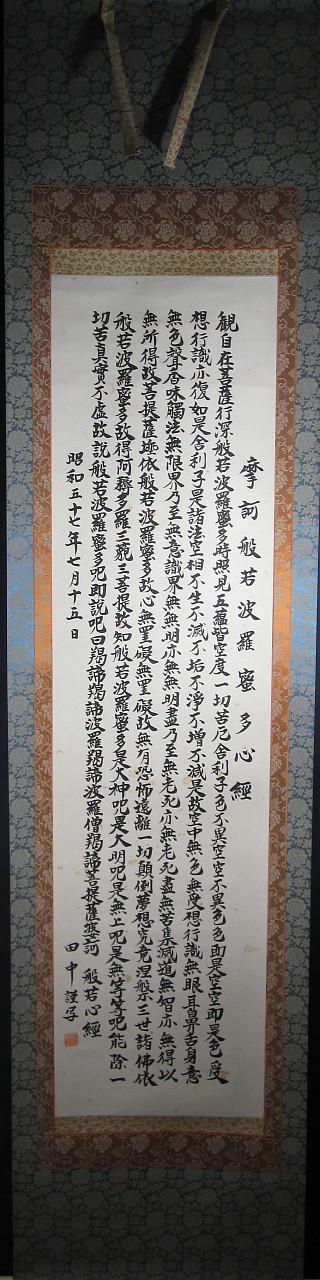 摩訶般若波羅蜜多心經
観自在菩薩行深般若波羅蜜多時照見五蘊皆空度一切苦厄舎利子色不異空空不異色色即是空空即是色受
想行識亦復如是舎利子是諸法空相不生不滅不垢不淨不増不減是故空中無色無受想行識無眼耳鼻舌身意
無色聲香味觸法無限界乃至無意識界無無明亦無無明盡乃至無老死亦無老死盡無苦集滅道無智亦無得以
無所得故菩提薩埵依般若波羅蜜多故心無罣礙無罣礙故無有恐怖遠離一切顛倒夢想究竟涅槃三世諸佛依
般若波羅蜜多故得阿耨多羅三藐三菩提故知般若波羅蜜多是大神呪是大明呪是無上呪是無等等呪能除一
切苦真實不虚故説般若波羅蜜多呪即説呪曰羯諦羯諦波羅羯諦波羅僧羯諦菩提薩婆訶 般若心經
昭和五十七年七月十五日
田中謹写